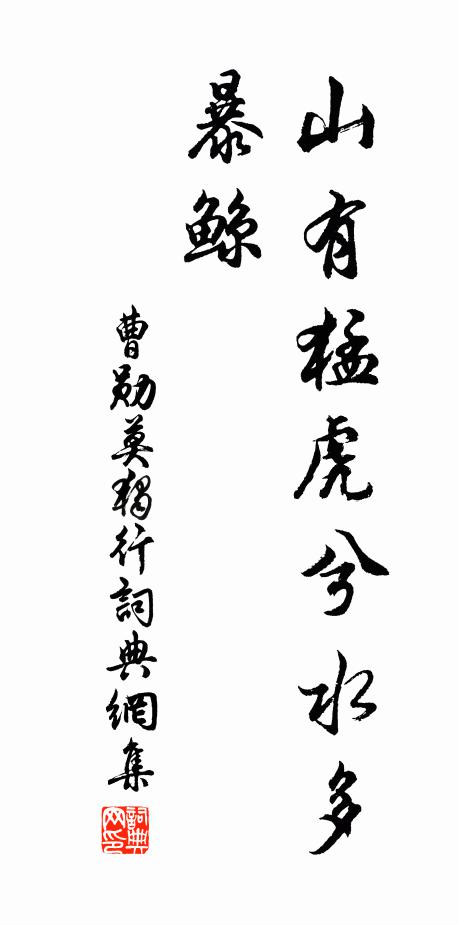 山有猛虎兮水多
暴鲸
曹勛莫獨行詞典網集
詞典网印